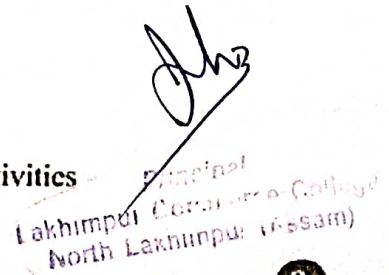 ivities
Principal
Lakhimpur Commerce College
North Lakhimpur (Assam)